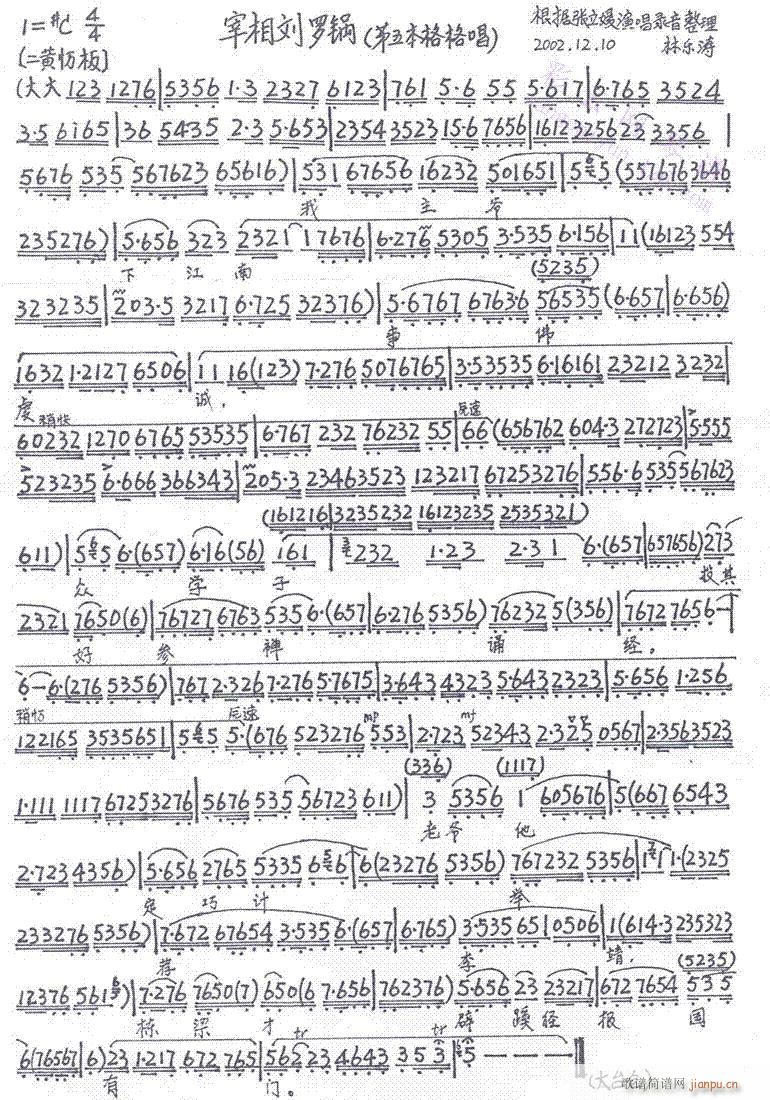 1=#C 4/4 宰相刘罗锅(第五本格格唱) 根据张立媛演唱录音整理
[二黄忉板] 2002.12.10 林乐涛
(大大 123 1276|5356 1·3 2327 6123|761 5·6 55 5·617|6·765 3524
3·5 6765|36 5435 2·3 5·653|2354 3523 15·6 7656|1612325623 3356|
5676 535 567623 65616)|531 67656 16232 501651|5 5(5576763646
我 主 爷
235276)|5·656 323 2321 17676|6·276 5305 3·535 6·156|11(16123 554
下 江 南
(5235)
323235|203·5 3217 6·725 32376)|5·6767 6763·6 56535(6·657|6·656)
事 佛
1632 1·2127 6506|11 16(123) 7·276 5076765|3·53535 6·16161 23212 3232|
虔 诚,
稍快 尾速
60232 1270 6765 53535|6·767 232 76232 55|66(656762 604·3 272723|5·555
523235 6·666 366343|205·3 23463523 123217 67253276|556·6 535567623
(161216|3235232 16123235 2535321)
611)|5 5 6·(657) 6·16(56) 161|232 1·23 2·31 6·(657|657656) 273
众 学 子 投其
2321 7650(6)|76727 6763 535 6·(657|6·276 5356) 76232 5(356)|7672 7656-|
好 参 禅 诵 经。
6-6·(276 5356)|767 2·326 7·276 5·7675|3·643 4323 5·643 2323|5·656 1·256
稍忉 尾速 mp mf
122165 3535651|5 5 5·(676 523276 553|2·723 52343 2·325 0567|2·3563523
(336) (1117)
1·111 1117 67253276|5676 535 56723 611)|3 5356 1 605676|5(667 6543
老爷 他
2·723 4356)|5·656 2765 5335 6 6|6(23276 5356) 767232 5356|1 1·(2325
定 巧 计 举
233276 5356)|7·672 67654 3·535 6·(657|6·765) 3·535 651 0506|1(614·3 235323
荐 李 靖,
(5235)
12376 561)|7·276 7650(7) 650(6 7·656|762376) 5·656 23 23217|672 7654 535
栋 梁 才 辟 蹊 径 报 国
6(76567|6) 23 1·217 672 765|562 23 4643 353|5 - - -||
有 门。
(大台仓)
歌谱简谱网
jianpu.cn